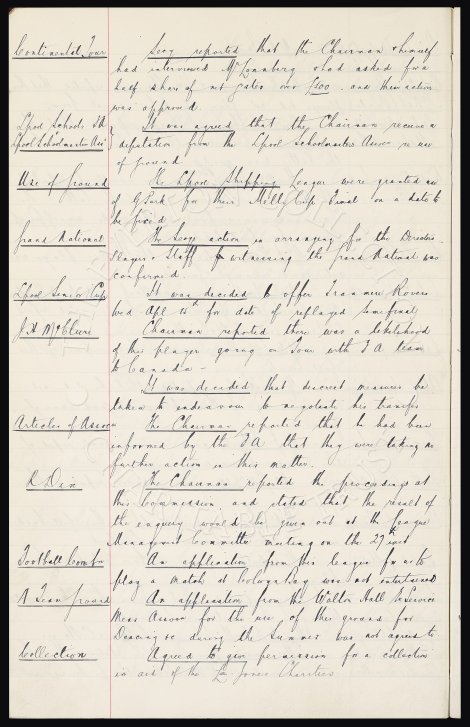 Continental Tour
Secy reported that the Chairman & himself
had interviewed Mr Lonnberg & had asked for a
half share of net gates over £200 and their action
was approved.
Lpool Schools FA
Lpool Schoolmasters Assn
It was agreed that the Chairman receive a
deputation from the Lpool Schoolmasters Assocn re use
of ground
Use of ground
The Lpool Shipping League were granted use
of G. Park for their Mill Cup Final on a date to
be fixed
Grand National
The Secys action in arranging for the Directors
Players & Staff for witnessing the Grand National was
confirmed.
Lpool Senior Cup
It was decided to offer Tranmere Rovers
Wed Apl 15th for date of replayed semifinal
J. H McClure
Chairman reported there was a likelihood
of this player going on Tour with F A team
to Canada -
It was decided that discreet measures be
taken to endeavour to negotiate his transfer
Articles of Assocn
The Chairman reported that he had been
informed by the F A that they were taking no
further action in this matter.
R. Dix
The Chairman reported the proceedings at
this Commission and stated that the result of
the enquiry would be given out at the League
Management Committee meeting on the 27th inst
Football Combn
An application from this league for us to
play a match at Colwyn Bay was not entertained
A Team Ground
An application from the Walton Hall Ex Service
Mens Assocn for the use of this ground for
Dancing &c during the Summer was not agreed to
Collection
Agreed to give permission for a collection
in aid of the Ld Jones Charities